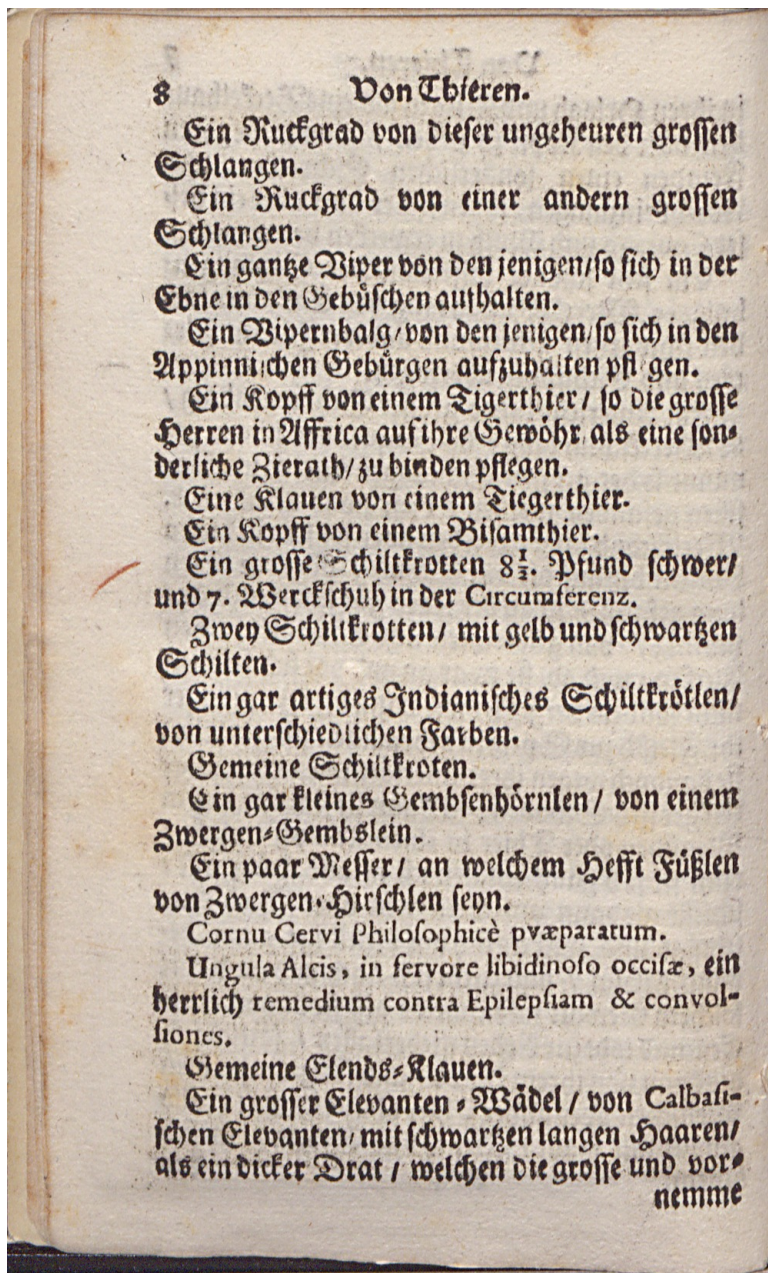 8 Von Thieren.
Ein Ruckgrad von dieser ungeheuren grossen
Schlangen.
Ein Ruckgrad von einer andern grossen
Schlangen.
Ein gantze Viper von den jenigen/so sich in der
Ebne in den Gebüschen aufhalten.
Ein Vipernbalg/von den jenigen/so sich in den
Appinnischen Gebürgen aufzuhalten pflegen.
Ein Kopff von einem Tigerthier/ so die grosse
Herren in Affrica auf ihre Gewöhr/als eine son-
derliche Zierath/zu binden pflegen.
Eine Klauen von einem Tiegerthier.
Ein Kopff von einem Bisamthier.
Ein grosse Schiltkrotten 8½. Pfund schwer/
und 7. Werckschuh in der Circumferenz.
Zwey Schiltkrotten/ mit gelb und schwartzen
Schilten.
Ein gar artiges Indianisches Schiltkrötlen/
von unterschiedlichen Farben.
Gemeine Schiltkroten.
Ein gar kleines Gembsenhörnlen/ von einem
Zwergen-Gembslein.
Ein paar Messer/ an welchem Hefft Füßlen
von Zwergen-Hirschlen seyn.
Cornu Cervi Philosophicè pvæparatum.
Ungula Alcis, in fervore libidinoso occisæ, ein
herrlich remedium contra Epilepsiam & convol-
siones.
Gemeine Elends-Klauen.
Ein grosser Elevanten-Wädel/ von Calbasi-
schen Elevanten/mit schwartzen langen Haaren/
als ein dicker Drat/ welchen die grosse und vor-
nemme